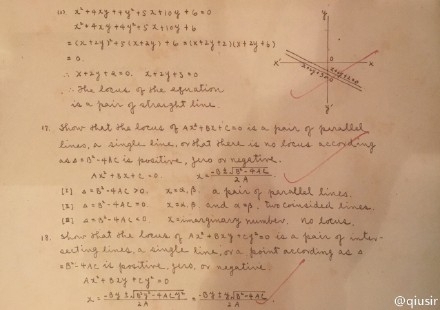 (c) x²+4xy+4y²+5x+10y+6=0
x²+4xy+4y²+5x+10y+6
=(x+2y)²+5(x+2y)+6=(x+2y+2)(x+2y+3)
=0.
∴ x+2y+2=0. x+2y+3=0
∴ The locus of the equation
is a pair of straight line.
y
x' 0 x
y'
17. Show that the locus of Ax²+Bx+C=0 is a pair of parallel
lines, a single line, or that there is no locus according
as Δ=B²-4AC is positive, zero or negative.
Ax²+Bx+C=0. x=-B±√B²-4AC/2A
[1] Δ=B²-4AC>0. x=α,β. a pair of parallel lines.
[2] Δ=B²-4AC=0. x=α,β and α=β, two coinsided lines.
[3] Δ=B²-4AC<0. x=imarginary number. no locus.
18. Show that the locus of Ax²+Bxy+Cy²=0 is a pair of inter-
secting lines, a single line, or a point according as Δ
=B²-4AC is positive, zero, or negative.
Ax²+Bxy+Cy²=0
x=-By±√B²y²-4ACy²/2A=-By±y√B²-4AC/2A
@qiusir